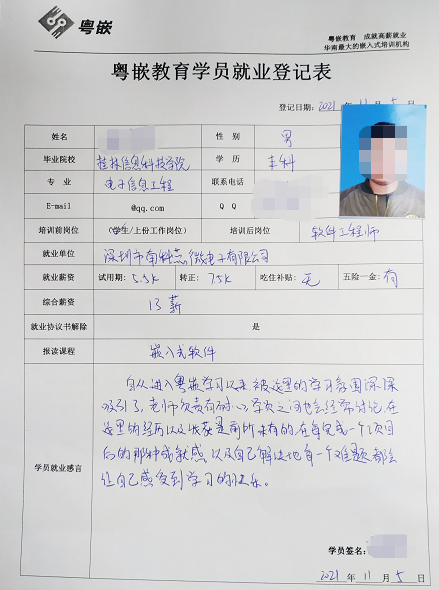 粤嵌
粤嵌教育 成就高薪就业
华南最大的嵌入式培训机构
粤嵌教育学员就业登记表
登记日期：2021 年 11 月 5 日
姓名 性 别 男
毕业院校 桂林信息科技学院 学 历 本科
专 业 电子信息工程 联系电话
E-mail @qq.com Q Q
培训前岗位 （学生/上份工作岗位） 培训后岗位 软件工程师
就业单位 深圳市南科芯微电子有限公司
就业薪资 试用期：5.5k 转正：7.5k 吃住补贴：无 五险一金：有
综合薪资 13薪
就业协议书解除 是
报读课程 嵌入式软件
学员就业感言
自从进入粤嵌学习以来，被这里的学习氛围深深
吸引了，老师负责有耐心，学员之间也会经常讨论，在
这里的经历以及收获是前所未有的，在每完成一个项目
后的那种成就感，以及自己解决地每一个难题都会
让自己感受到学习的快乐。
学员签名：
2021 年 11 月 5 日